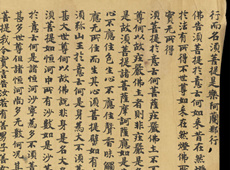 行而名須菩提是樂阿蘭那行
佛告須菩提於意云何如來昔在然燈
於法有所得不世尊如來在然燈佛所
實無所得
須菩提於意云何菩薩莊嚴佛土不不
尊何以故莊嚴佛土者則非莊嚴是
是故須菩提諸菩薩摩訶薩應如是
心不應住色生心不應住聲香味觸
應無所住而生其心須菩提譬如有
須彌山王於意云何是身為大不須
甚大世尊何以故佛說非身是名大
須菩提如恒河中所有沙數如是沙
於意云何是諸恒河沙寧為多不須
甚多世尊但諸恒河尚多無數何況其
菩提我今實言告汝若有善男子善